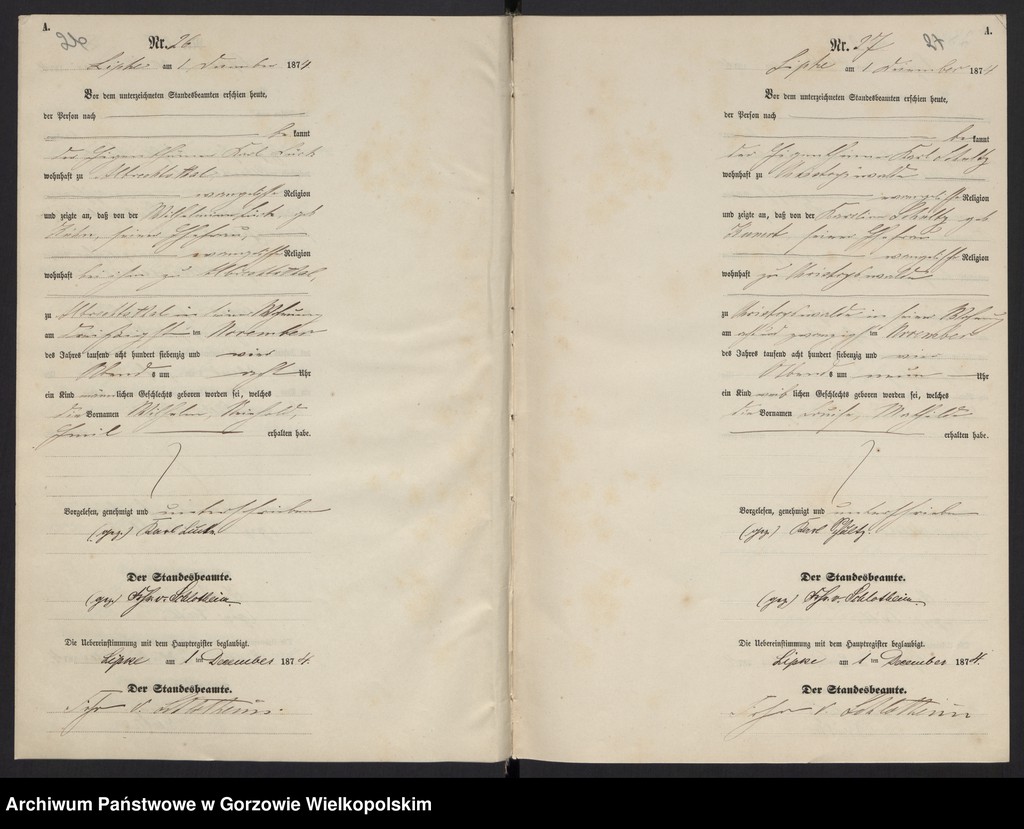 A.
26
Nr. 26
Lipke am 1 December 1874
Vor dem unterzeichneten Standesbeamten erschien heute,
der Person nach
bekannt
der Eigenthümer Karl Lück
wohnhaft zu Albrechtsthal
evangelische Religion
und zeigte an, daß von der Wilhelmine Lück, geb
seiner Ehefrau,
evangelische Religion
wohnhaft bei ihm zu Albrechtsthal,
zu Albrechtsthal in seiner Wohnung
am dreißigsten November
des Jahres tausend acht hundert siebenzig und vier
Abends um acht Uhr
ein Kind männlichen Geschlechts geboren worden sei, welches
die Vornamen Wilhelm, Reinhold,
Emil erhalten habe.
Vorgelesen, genehmigt und unterschrieben
(gez) Karl Lück
Der Standesbeamte.
(gez) Frhr. v. Schlotheim
Die Uebereinstimmung mit dem Hauptregister beglaubigt.
Lipke am 1 ten December 1874.
Der Standesbeamte.
Frhr v. Schlotheim.
A.
27
Nr. 27
Lipke am 1 December 1874
Vor dem unterzeichneten Standesbeamten erschien heute,
der Person nach
bekannt
der Eigenthümer Karl Scholtz
wohnhaft zu Kristophswalde
evangelische Religion
und zeigte an, daß von der Karoline Scholtz geb
seiner Ehefrau
evangelische Religion
wohnhaft zu Kristophswalde
zu Kristophswalde in seiner Wohnung
am acht und zwanzigsten November
des Jahres tausend acht hundert siebenzig und vier
Abends um neun Uhr
ein Kind weiblichen Geschlechts geboren worden sei, welches
die Vornamen Louise, Mathilde
erhalten habe.
Vorgelesen, genehmigt und unterschrieben
(gez) Karl Scholtz.
Der Standesbeamte.
(gez) Frhr. v. Schlotheim
Die Uebereinstimmung mit dem Hauptregister beglaubigt.
Lipke am 1 ten December 1874.
Der Standesbeamte.
Frhr v. Schlotheim
Archiwum Państwowe w Gorzowie Wielkopolskim